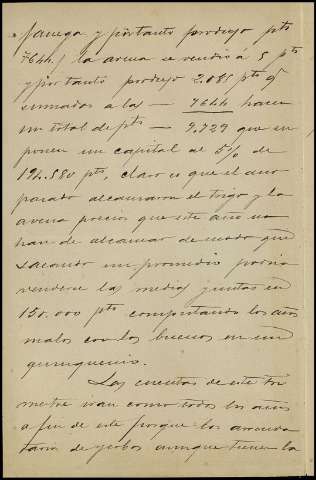 fanega y portanto produjo pts
7644. y la avena se vendió á 5 pts
y portanto produjo 2.085 pts q̃
sumados a las — 7644 hacen
un total de pts — 9.729 que su
ponen un capital al 5% de
194.580 pts, claro es que el año
pasado alcanzaron el trigo y la
avena precios que este año no
han de alcanzar de modo que
sacando un promedio podria
venderse las medias juntas en
150.000 pts computando los años
malos con los buenos en un
quinquenio.
Las cuentas de este tri
mestre iran como todos los años
a fin de este porque los arrenda
tarios de yerbas aunque tienen la